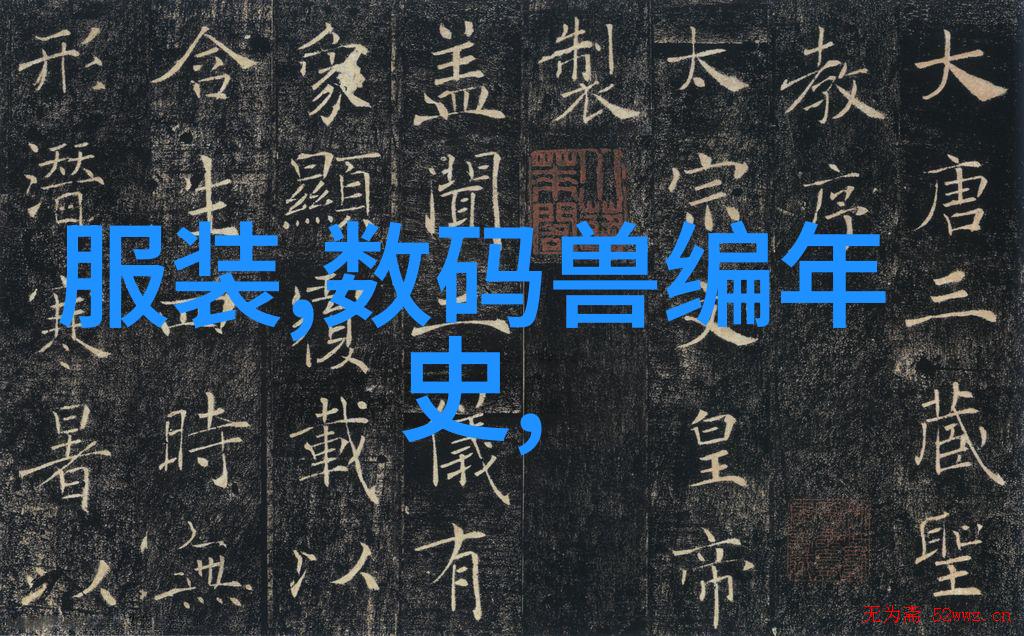 大唐三藏聖
教序
太宗文皇帝
製
盖聞二儀有
象顯覆載以
含生四時無
形潛寒暑以
服装,数码兽编年
史,
无为斋 52wwz.cn